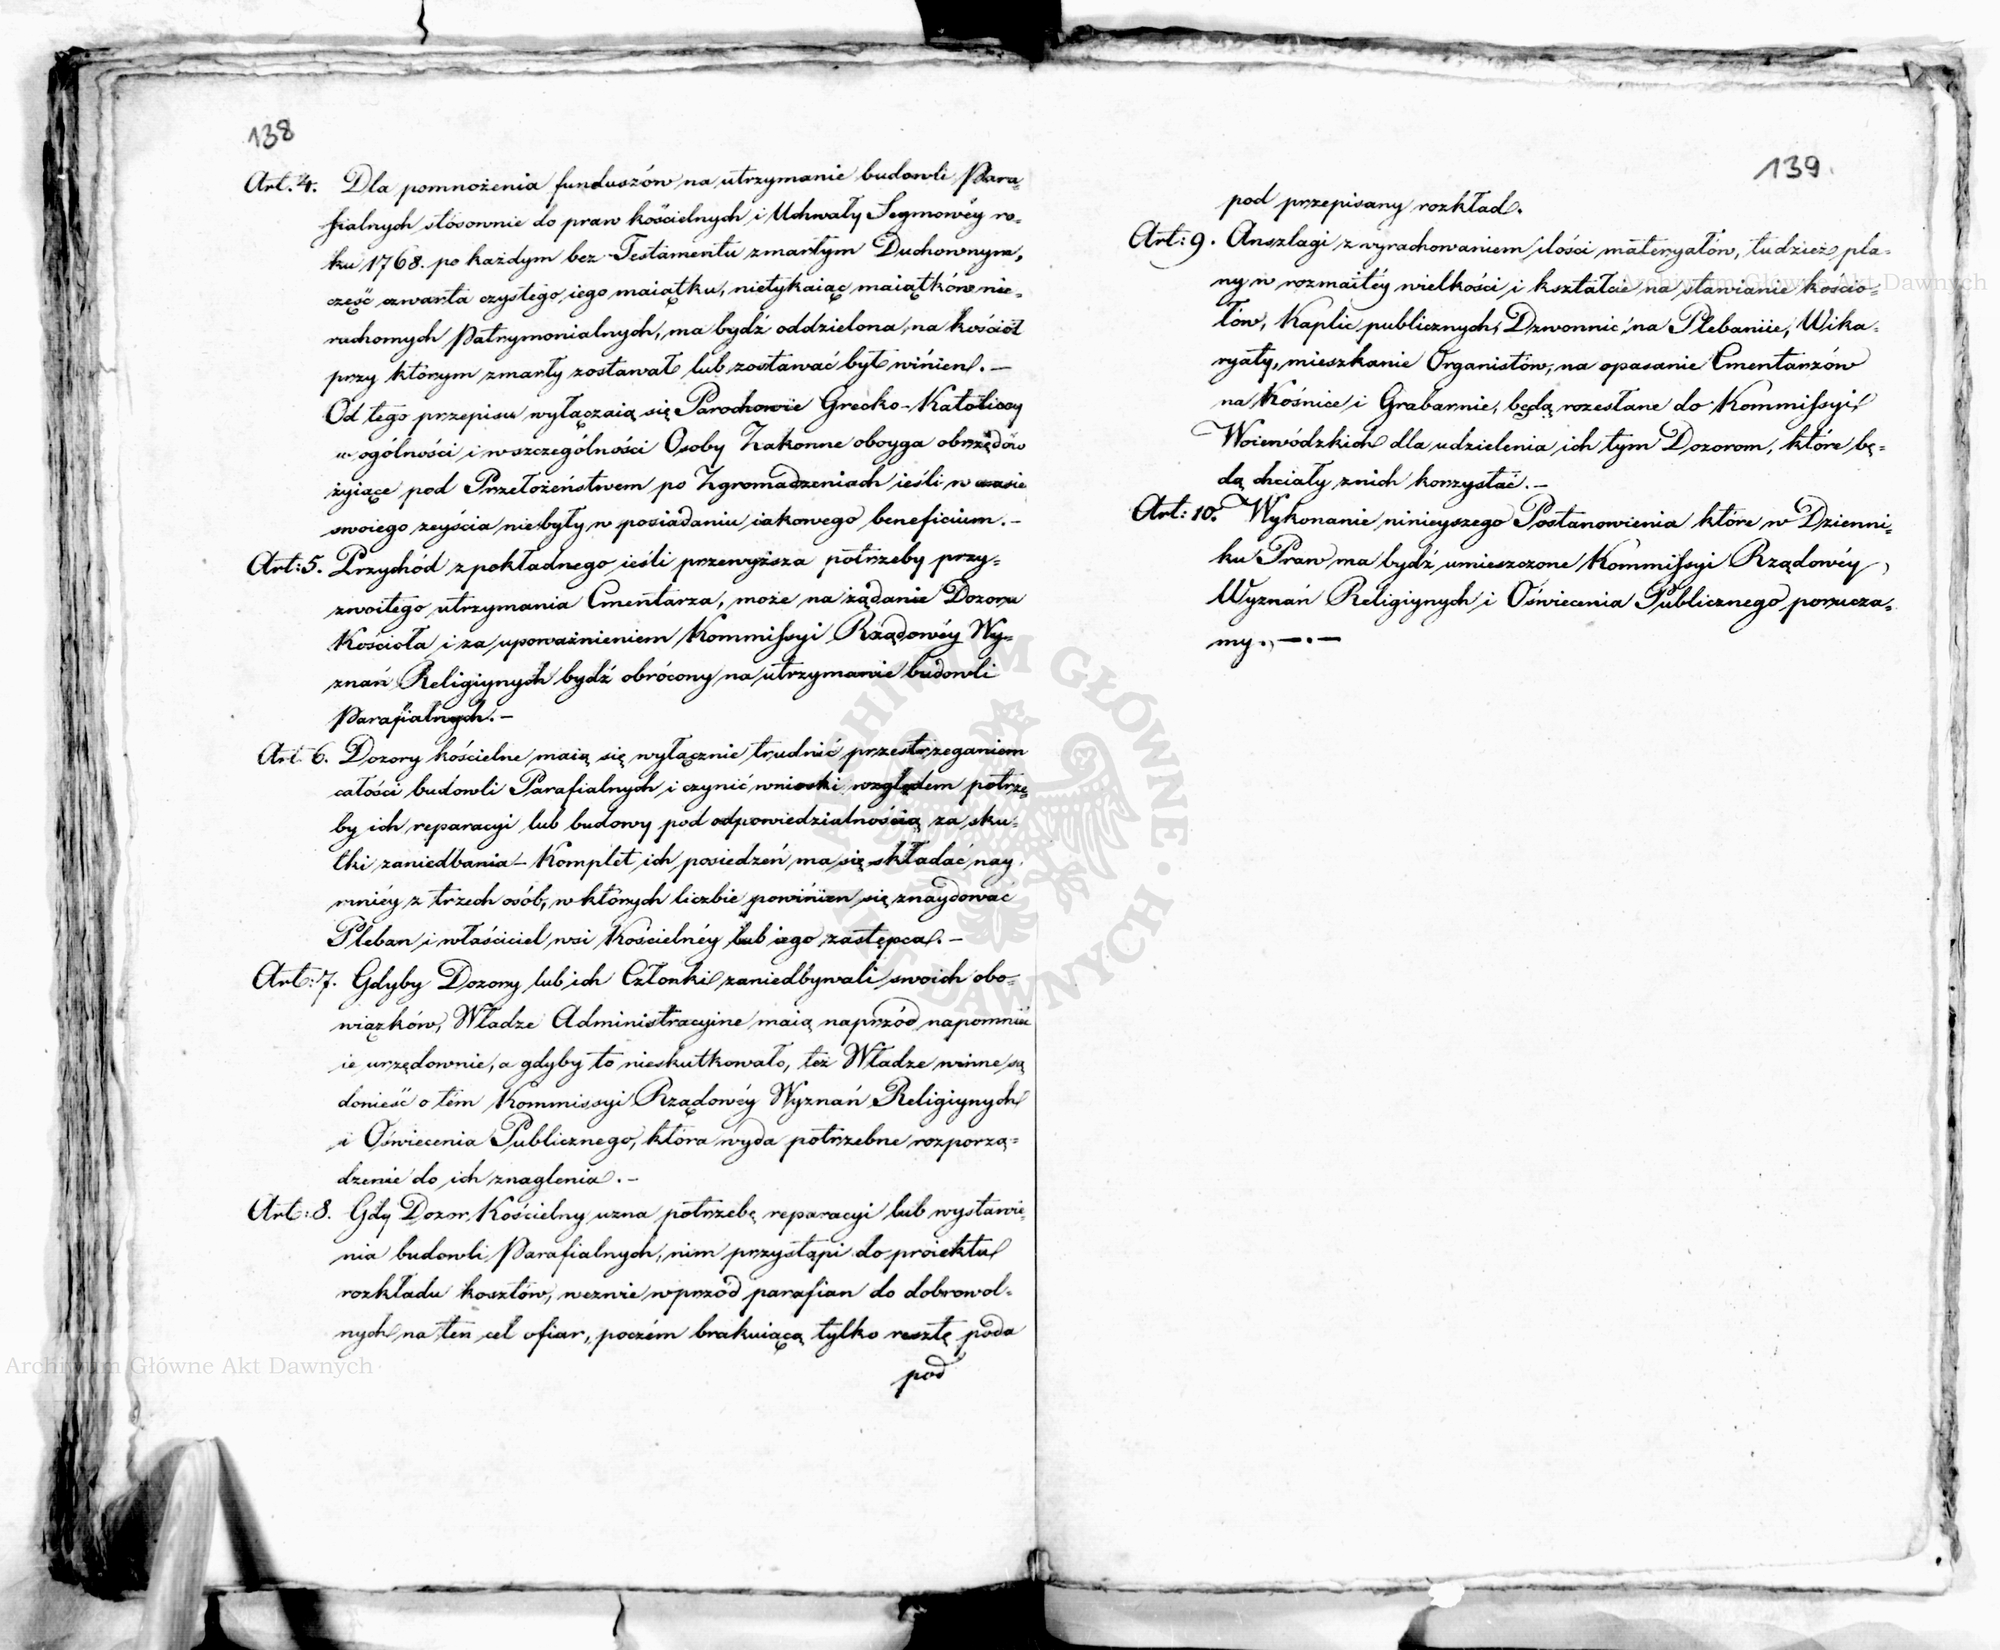 138
Art. 4. Dla pomnożenia funduszów na utrzymanie budowli Para-
fialnych stósownie do praw kościelnych i Uchwały Seymowéy ro-
ku 1768. po każdym bez Testamentu zmarłym Duchownym,
część czwarta czystego iego maiątku, nietykaiąc maiątków nie-
ruchomych Patrymonialnych, ma bydź oddzielona na kościół
przy którym zmarły zostawał lub zostawać był winien. —
Od tego przepisu wyłączaią się Parochowie Grecko-Katoliccy
w ogólności i w szczególności Osoby Zakonne oboyga obrzędów
żyiące pod Przełożeństwem po Zgromadzeniach ieśli w czasie
swoiego zeyścia niebyły w posiadaniu iakowego beneficium. -
Art: 5. Przychód z pokładnego ieśli przewyższa potrzeby przy-
zwoitego utrzymania Cmentarza, może na żądanie Dozoru
Kościoła i za upoważnieniem Kommissyi Rządowéy Wy-
znań Religiynych bydź obrócony na utrzymanie budowli
Parafialnych. -
Art. 6. Dozory kościelne maią się wyłącznie trudnić przestrzeganiem
całości budowli Parafialnych i czynić wnioski względem potrze-
by ich reparacyi lub budowy pod odpowiedzialnością za sku-
tki zaniedbania - Komplet ich posiedzeń ma się składać nay
mniéy z trzech osób, w których liczbie powinien się znaydować
Pleban i właściciel wsi Kościelnéy lub iego zastępca. -
Art: 7. Gdyby Dozory lub ich Członki zaniedbywali swoich obo-
wiązków, Władze Administracyine maią naprzód napomnieć
ie urzędownie, a gdyby to nieskutkowało, też Władze winne są
donieść o tém Kommissyi Rządowéy Wyznań Religiynych
i Oświecenia Publicznego, która wyda potrzebne rozporzą-
dzenie do ich znaglenia. -
Art: 8. Gdy Dozor Kościelny uzna potrzebę reparacyi lub wystawie-
nia budowli Parafialnych, nim przystąpi do proiektu
rozkładu kosztów, wezwie wprzód parafian do dobrowol-
nych na ten cel ofiar, poczém brakuiącą tylko resztę poda
pod
139.
pod przepisany rozkład.
Art: 9. Anszlagi z wyrachowaniem ilości materyałów, tudzież pla-
ny w rozmaitéy wielkości i kształcie na stawianie kościo-
łów, Kaplic publicznych, Dzwonnic, na Plebaniie, Wika-
ryaty, mieszkanie Organistów, na opasanie Cmentarzów
na Kośnice i Grabarnie, będą rozesłane do Kommissyi
Woiewódzkich dla udzielenia ich tym Dozorom, które bę-
dą chciały z nich korzystać. -
Art: 10. Wykonanie ninieyszego Postanowienia które w Dzienni-
ku Praw ma bydź umieszczone Kommissyi Rządowéy
Wyznań Religiynych i Oświecenia Publicznego porucza-
my. —.—
Archiwum Główne Akt Dawnych
Archiwum Główne Akt Dawnych
ARCHIWUM GŁÓWNE AKT DAWNYCH